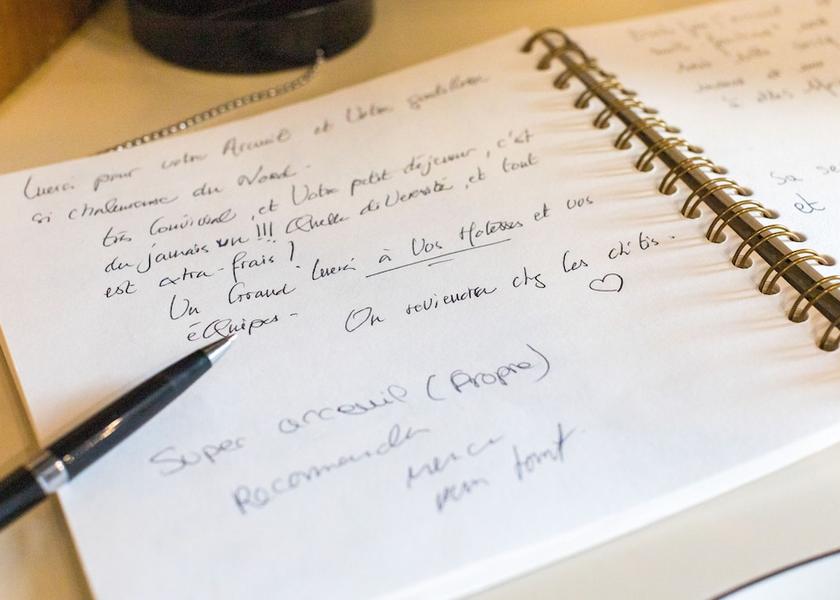 Merci pour votre Accueil et Votre gentillesse
si chaleureuse du Nord.
très Convivial, et Votre petit déjeuner, c'est
du jamais vu !!! Quelle diversité, et tout
est extra-frais !
Un Grand Merci à Vos Hotesses et vos
éQuipes. On reviendra chez les ch'tis.
Super arceuil (Propre)
Recommander
Merci
pour tout
et